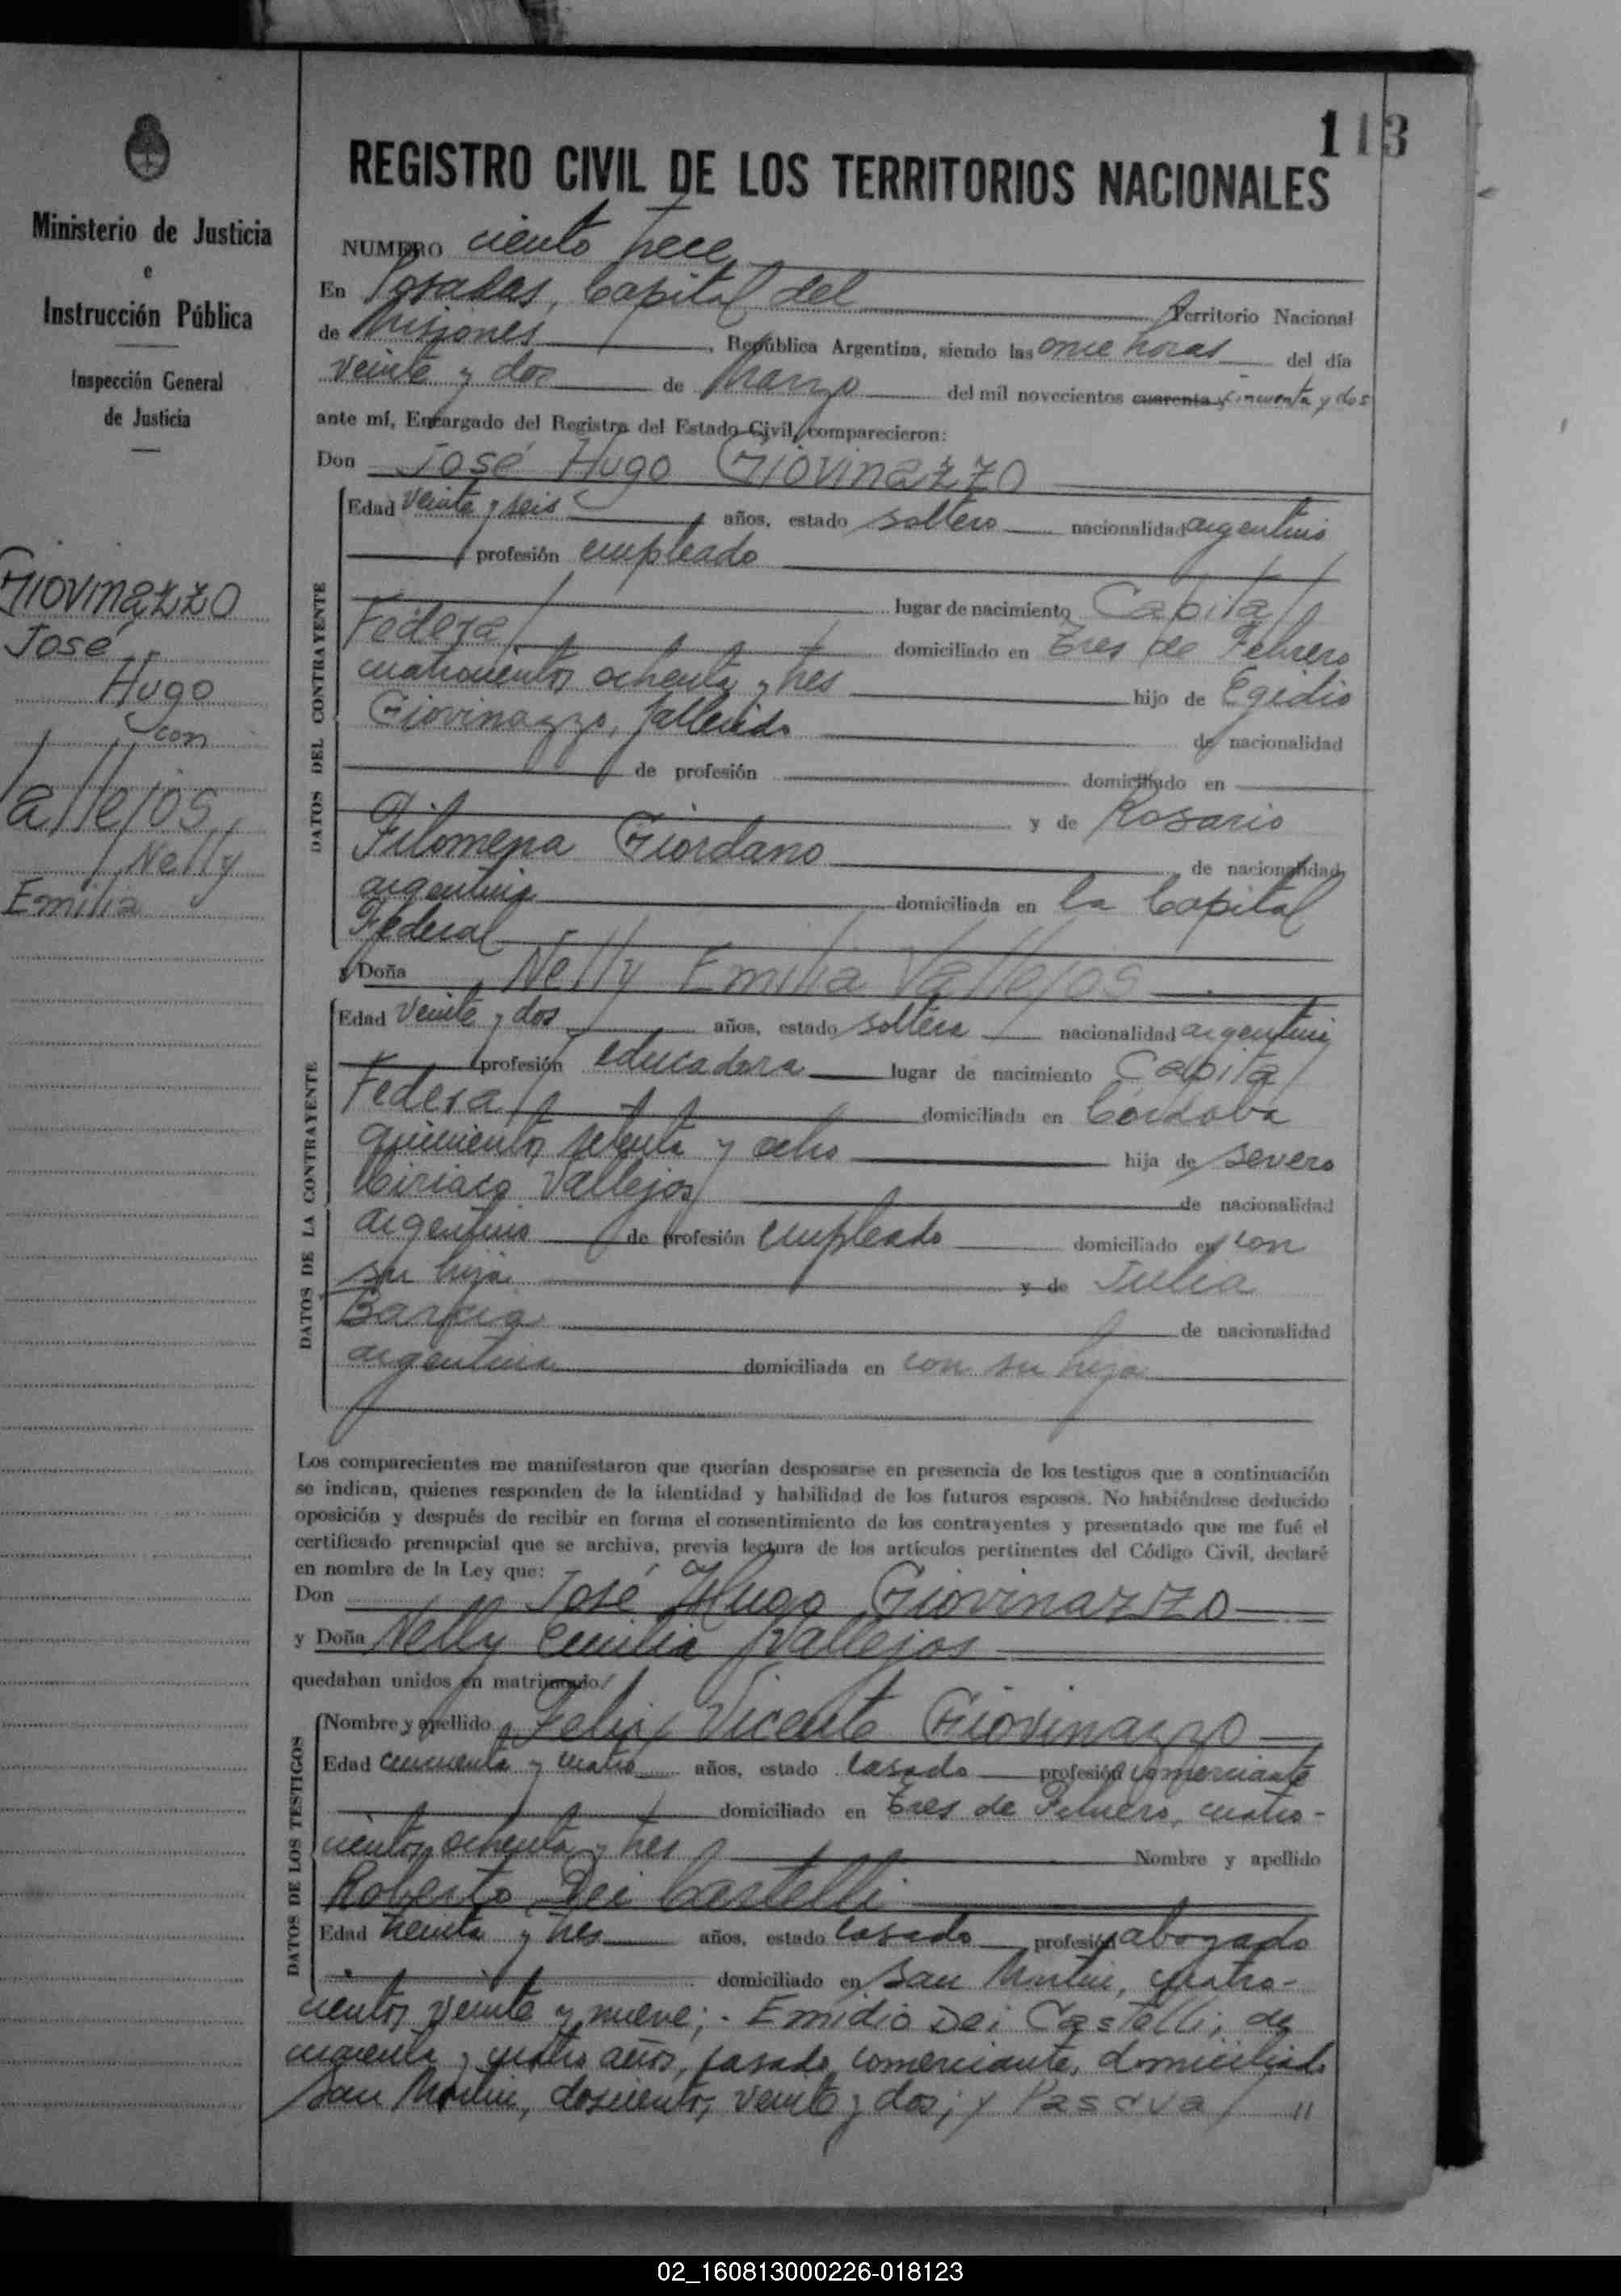 113
Ministerio de Justicia
e
Instrucción Pública
Inspección General
de Justicia
Giovinazzo
José
Hugo
con
Vallejos
Nelly
Emilia
REGISTRO CIVIL DE LOS TERRITORIOS NACIONALES
NUMERO ciento trece
En Posadas, Capital del Territorio Nacional
de Misiones, República Argentina, siendo las once horas del día
veinte y dos de Marzo del mil novecientos cuarenta y cincuenta y dos
ante mí, Encargado del Registro del Estado Civil, comparecieron:
Don José Hugo Giovinazzo
DATOS DEL CONTRAYENTE
Edad veinte y seis años, estado soltero nacionalidad argentino
profesión empleado
lugar de nacimiento Capital
Federal domiciliado en Tres de Febrero
cuatrocientos ochenta y tres hijo de Egidio
Giovinazzo, fallecido de nacionalidad
de profesión domiciliado en
y de Rosario
Filomena Giordano de nacionalidad
argentina domiciliada en la Capital
Federal
y Doña Nelly Emilia Vallejos
DATOS DE LA CONTRAYENTE
Edad veinte y dos años, estado soltera nacionalidad argentina
profesión educadora lugar de nacimiento Capital
Federal domiciliada en Córdoba
quinientos setenta y ocho hija de Severo
Ciriaco Vallejos de nacionalidad
argentino de profesión empleado domiciliado en con
su hija y de Julia
de nacionalidad
argentina domiciliada en con su hija
Los comparecientes me manifestaron que querían desposarse en presencia de los testigos que a continuación
se indican, quienes responden de la identidad y habilidad de los futuros esposos. No habiéndose deducido
oposición y después de recibir en forma el consentimiento de los contrayentes y presentado que me fué el
certificado prenupcial que se archiva, previa lectura de los artículos pertinentes del Código Civil, declaré
en nombre de la Ley que:
Don José Hugo Giovinazzo
y Doña Nelly Emilia Vallejos
quedaban unidos en matrimonio.
DATOS DE LOS TESTIGOS
Nombre y apellido Felix Vicente Giovinazzo
Edad cincuenta y cuatro años, estado casado profesión comerciante
domiciliado en Tres de Febrero, cuatro-
cientos ochenta y tres Nombre y apellido
Roberto Dei Castelli
Edad treinta y tres años, estado casado profesión abogado
domiciliado en San Martin, cuatro-
cientos veinte y nueve; - Emidio Dei Castelli, de
y cuatro años, casado, comerciante, domiciliado
San Martin, doscientos veinte y dos; y Pascual //
02_160813000226-018123